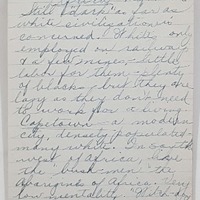 as far as
white civilization is
concerned. Whites only
employed on railway
& a few mines - little
labor for them - plenty
of blacks - but they are
lazy as they don't need
to work for a living.
Capetown - a modern
city, densely populated -
many white. In south
west of Africa, are
the bushmen the
Aborigins of Africa. Very
low mentality.